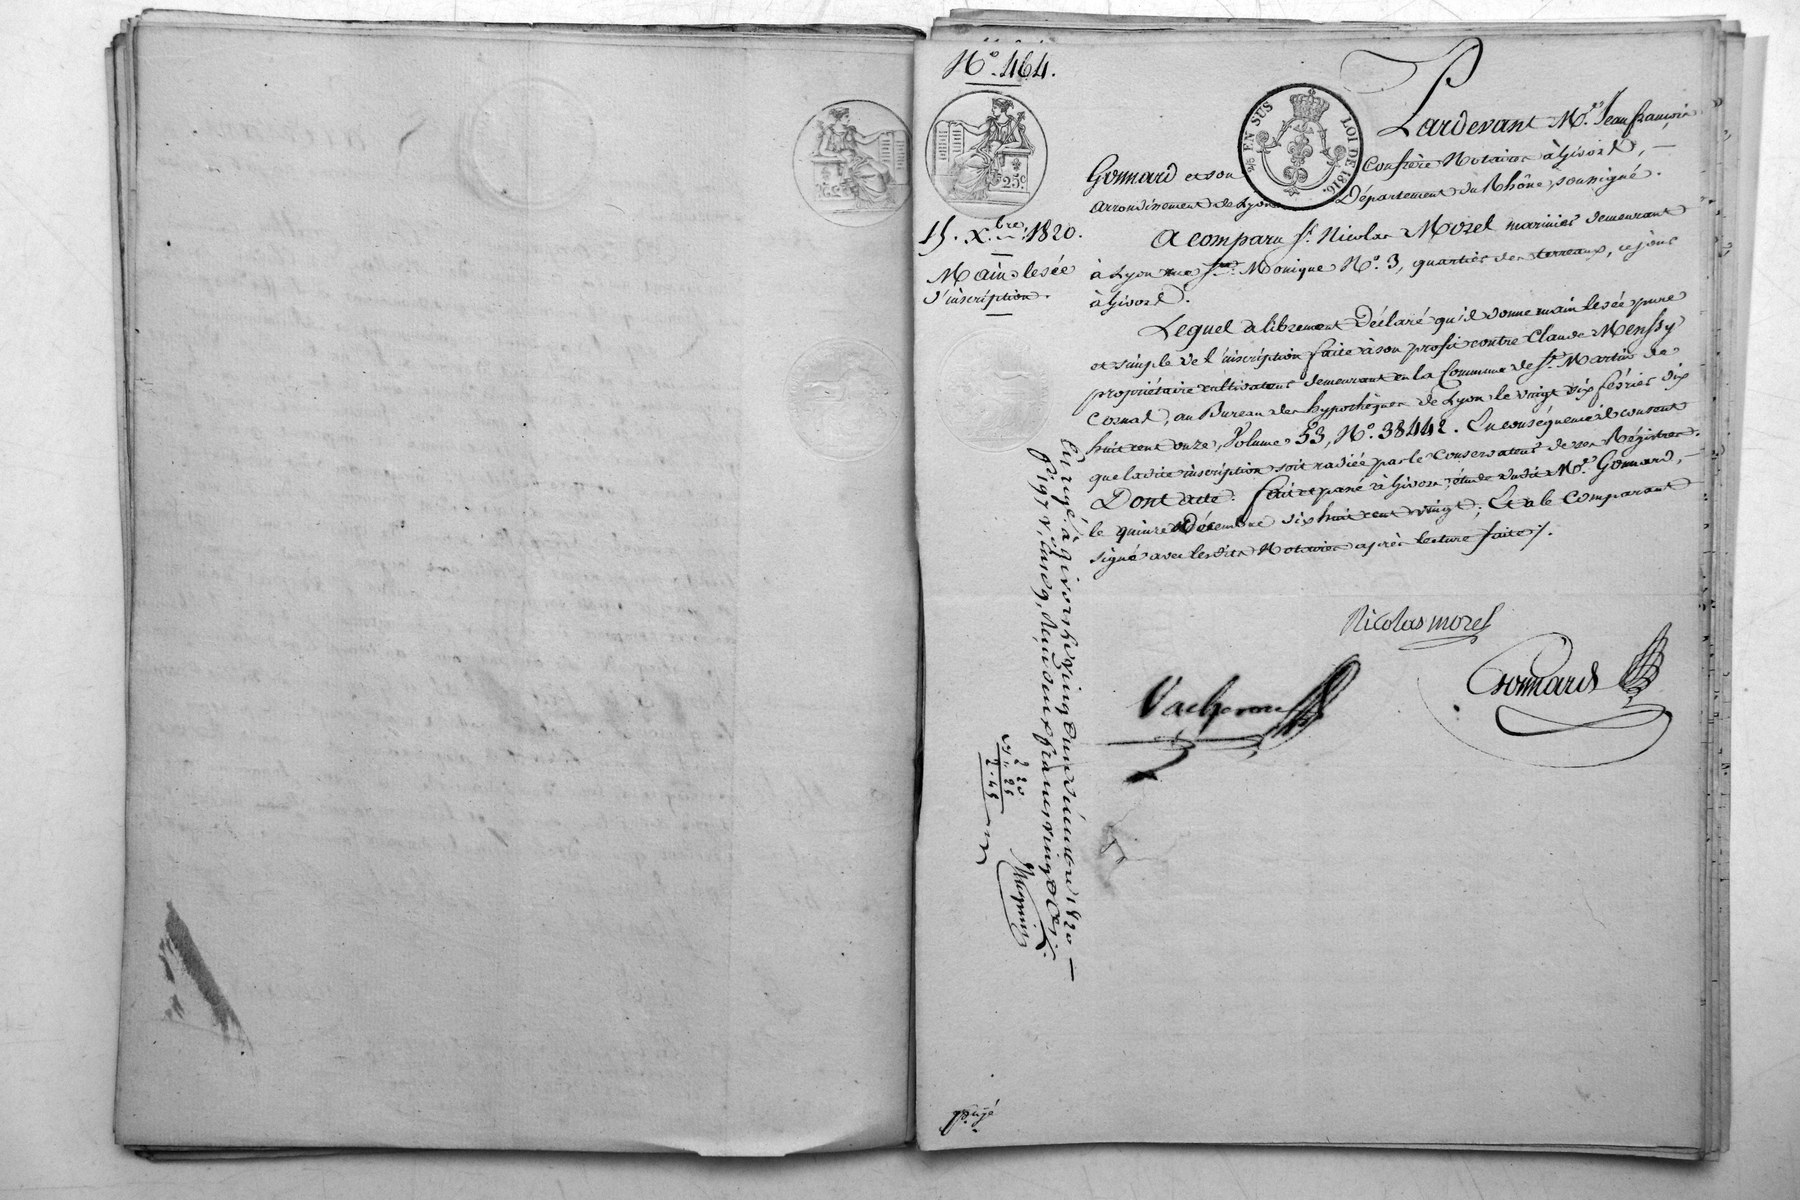 N.° 464.
25.c
15. X.bre 1820.
Mainlevée
d'inscription.
EN SUS
LOI DE 1816.
Pardevant M.e Jean françois
Gonnard et son confrère Notaires à Givors, —
arrondissement de Lyon Département du Rhône, soussigné.
A comparu S.r Nicolas Morel marinier demeurant
à Lyon rue S.te Monique N.° 3, quartier des terreaux, ce jour
à Givors.
Lequel a librement Déclaré qu'il donne mainlevée pure
et simple de l'inscription faite à son profit contre Claude Menssy
propriétaire cultivateur demeurant en la Commune de S.t Martin de
Cornas, au Bureau des hypothèques de Lyon le vingt six février dix
huit cent onze, Volume 53, N.° 38442. En conséquence il consent
que ladite inscription soit radiée par le Conservateur de ses Régistres.
Dont acte. fait et passé à Givors, étude dudit M.e Gonnard, —
le quinze Décembre dix huit cent vingt; Et a le Comparant
signé avec lesdits Notaires après lecture faite.
Nicolas morel
Vacheron
Gonnard
Enregé. à givors le vingt un décembre 1820 —
f° 197 v.° case 9, reçu deux francs vingt c.
2 20
22
2.42
payé